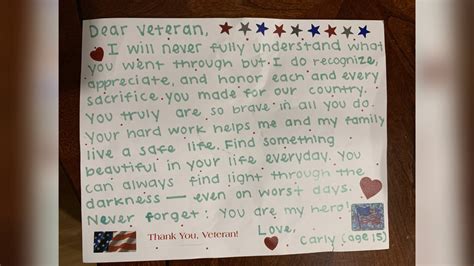 Dear Veteran,
I will never fully understand what
you went through but I do recognize,
appreciate, and honor each and every
sacrifice you made for our country.
You truly are so brave in all you do.
Your hard work helps me and my family
live a safe life. Find something
beautiful in your life everyday. You
can always find light through the
darkness — even on worst days.
Never forget: you are my hero!
Thank You, Veteran!
Love,
Carly (age 15)